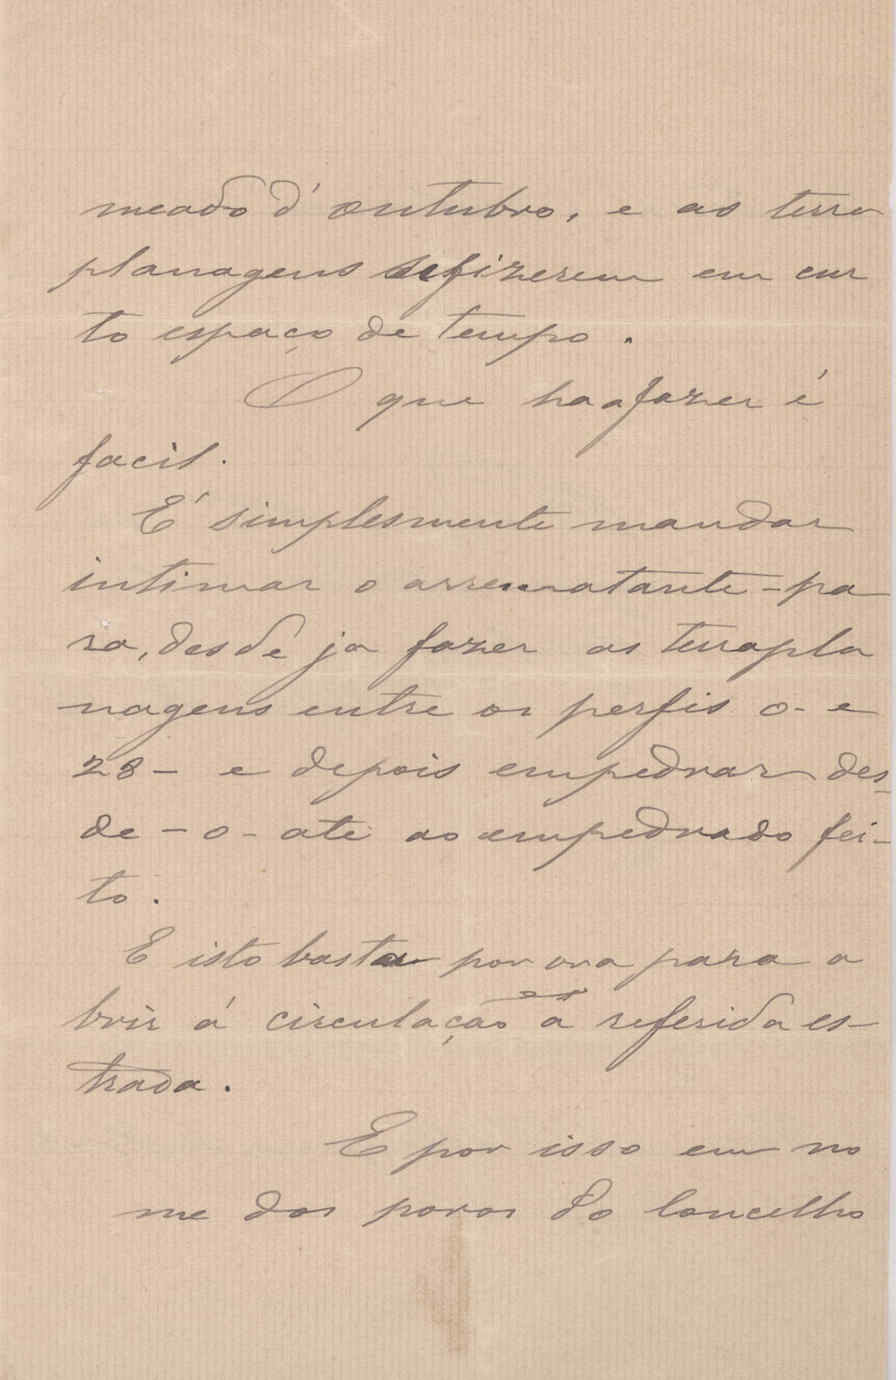 meado d'outubro, e as terra
planagens se fizerem em cur
to espaço de tempo.
O que ha a fazer é
facil.
É simplesmente mandar
intimar o arrematante - pa
ra, desde ja fazer as terapla
nagens entre os perfis 0 - e
28 - e depois empedrar des-
de - 0 - até ao empedrado fei-
to.
E isto basta por ora para a
brir á circulação a referida es-
trada.
E por isso em no
me dos povos do Concelho